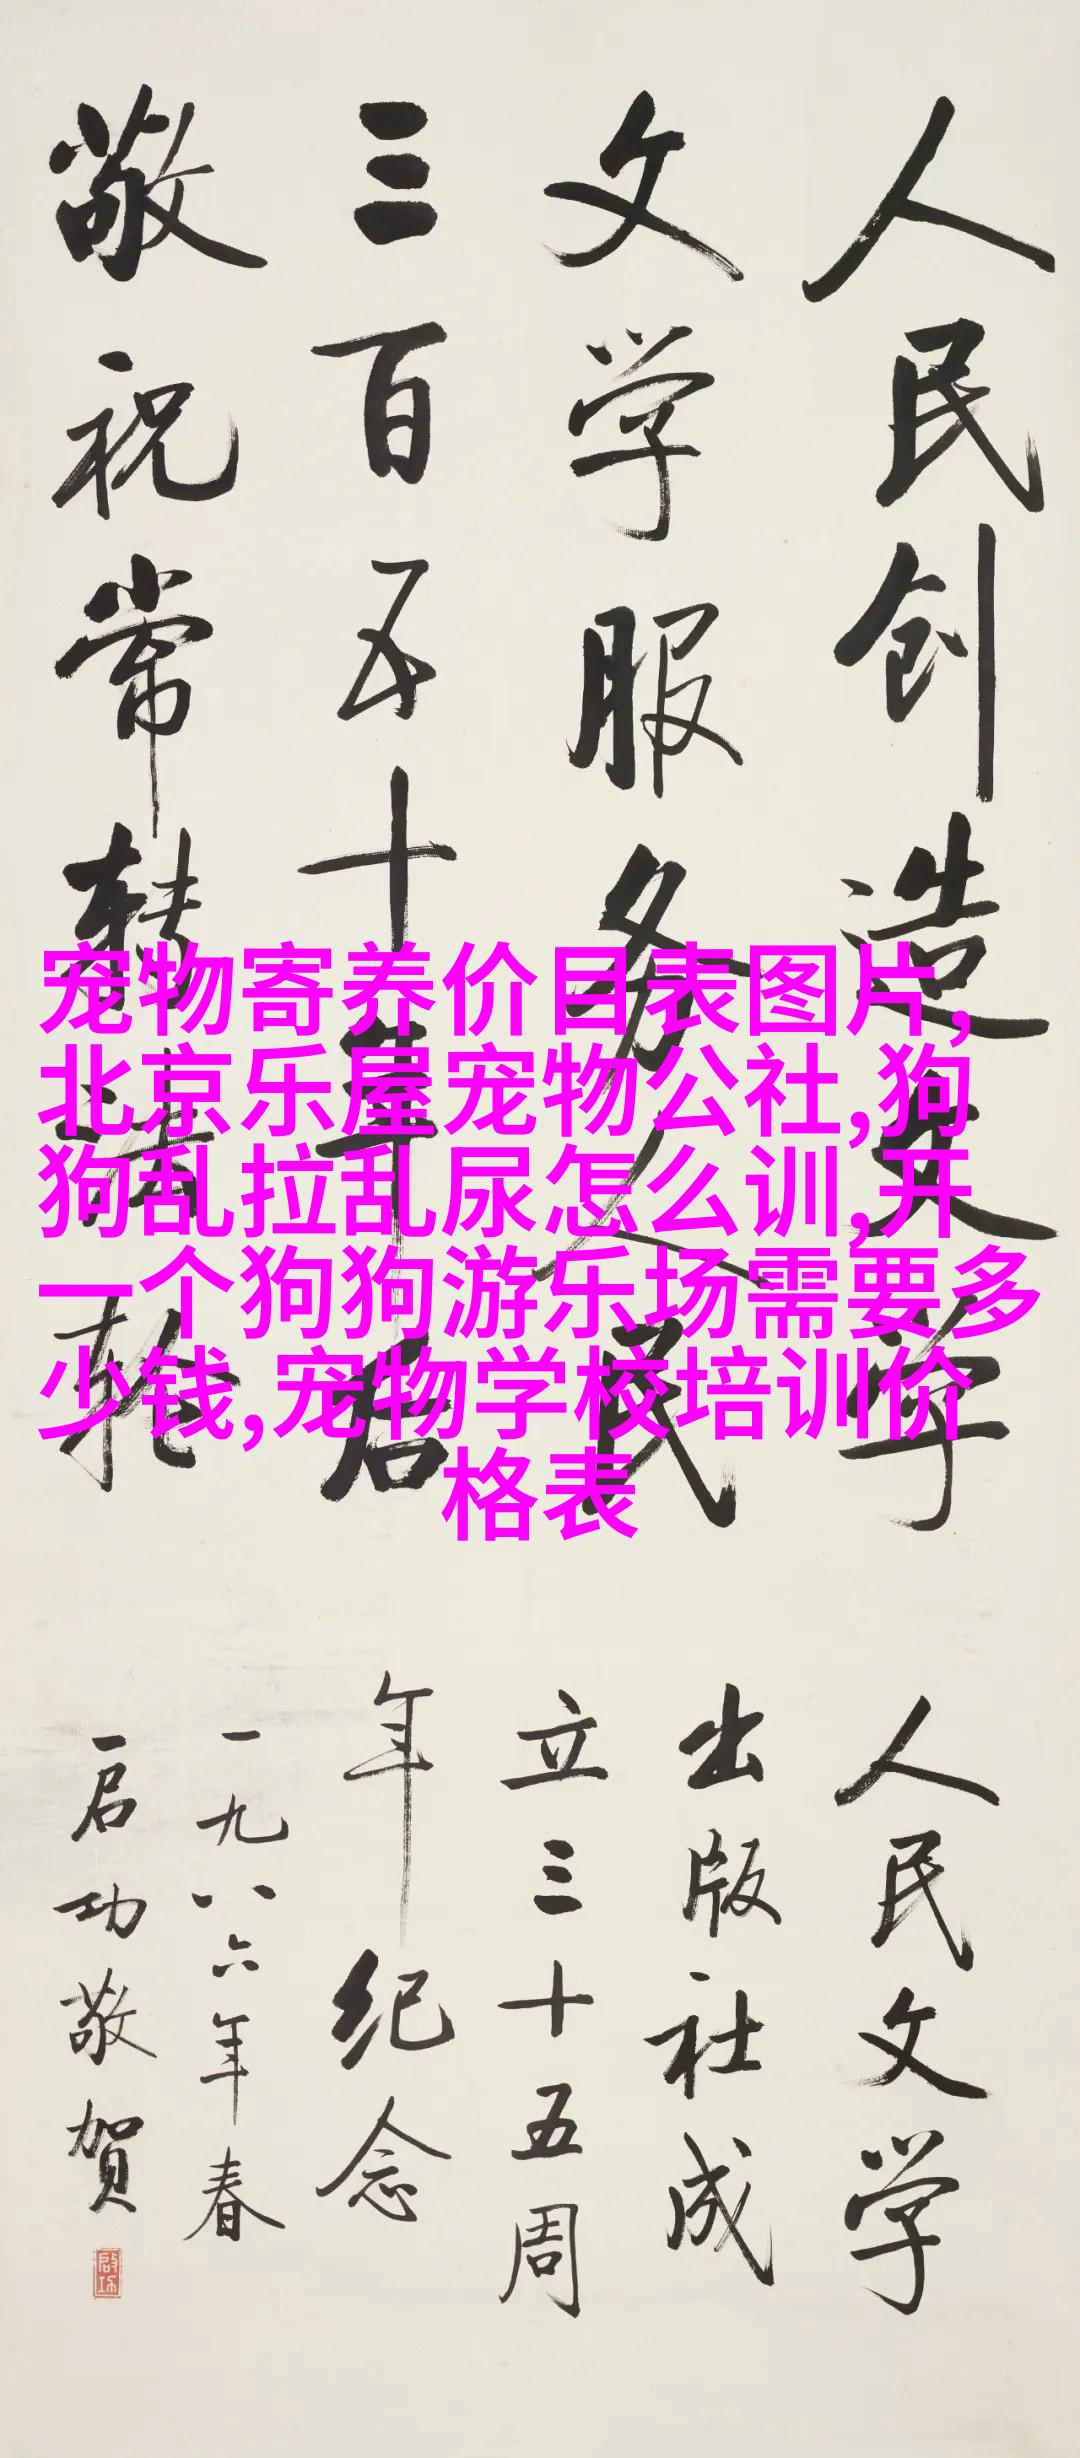 人民创造文学
文学服务人民
三百五十年后
敬祝常转法轮
人民文学
出版社成
立三十五周
年纪念
一九八六年春
启功敬贺
宠物寄养价目表图片,
北京乐屋宠物公社,狗
狗乱拉乱尿怎么训,开
一个狗狗游乐场需要多
少钱,宠物学校培训价
格表